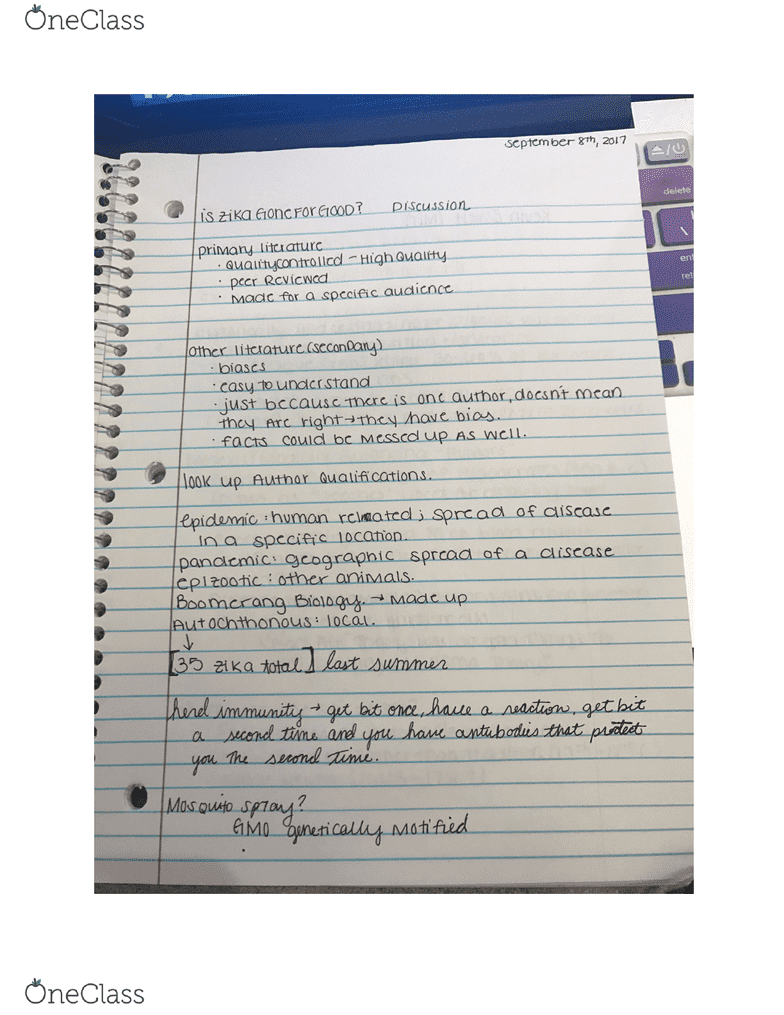 OneClass
September 8th, 2017
delete
is Zika Gone For Good? Discussion
primary literature
· Quality controlled - High Quality
· peer Reviewed
· Made for a specific audience
other literature (secondary)
· biases
· easy to understand
· just because there is one author, doesn't mean
they Are right → they have bias.
· facts could be Messed up As well.
look up Author Qualifications.
epidemic: human related; spread of disease
in a specific location.
pandemic: geographic spread of a disease
epizootic: other animals.
Boomerang Biology. → Made up
Autochthonous: local.
↓
[35 Zika total] last summer
herd immunity → get bit once, have a reaction, get bit
a second time and you have antubodies that protect
you The second Time.
Mosquito spray?
GMO genetically Motified
OneClass